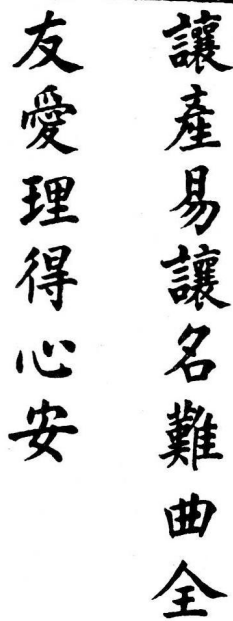 讓產易讓名難曲全
友愛理得心安